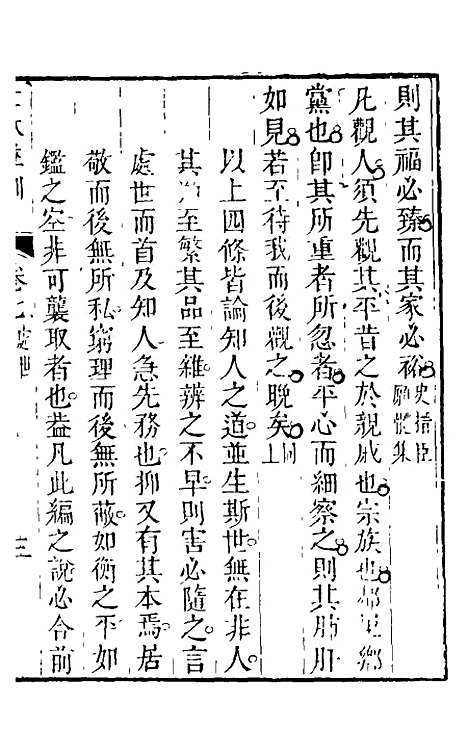 則其福必臻而其家必裕史搢臣願體集
凡觀人須先觀其平昔之於親戚也宗族也鄰里鄉
黨也卽其所重者所忽者平心而細察之則其肺肝
如見若至待我而後觀之晚矣同上
以上四條皆論知人之道並生斯世無在非人
其 至繁其品至雜辨之不早則害必隨之言
處世而首及知人急先務也抑又有其本焉居
敬而後無所私窮理而後無所蔽如衡之平如
鑑之空非可襲取者也蓋凡此編之說必合前
卷 處世